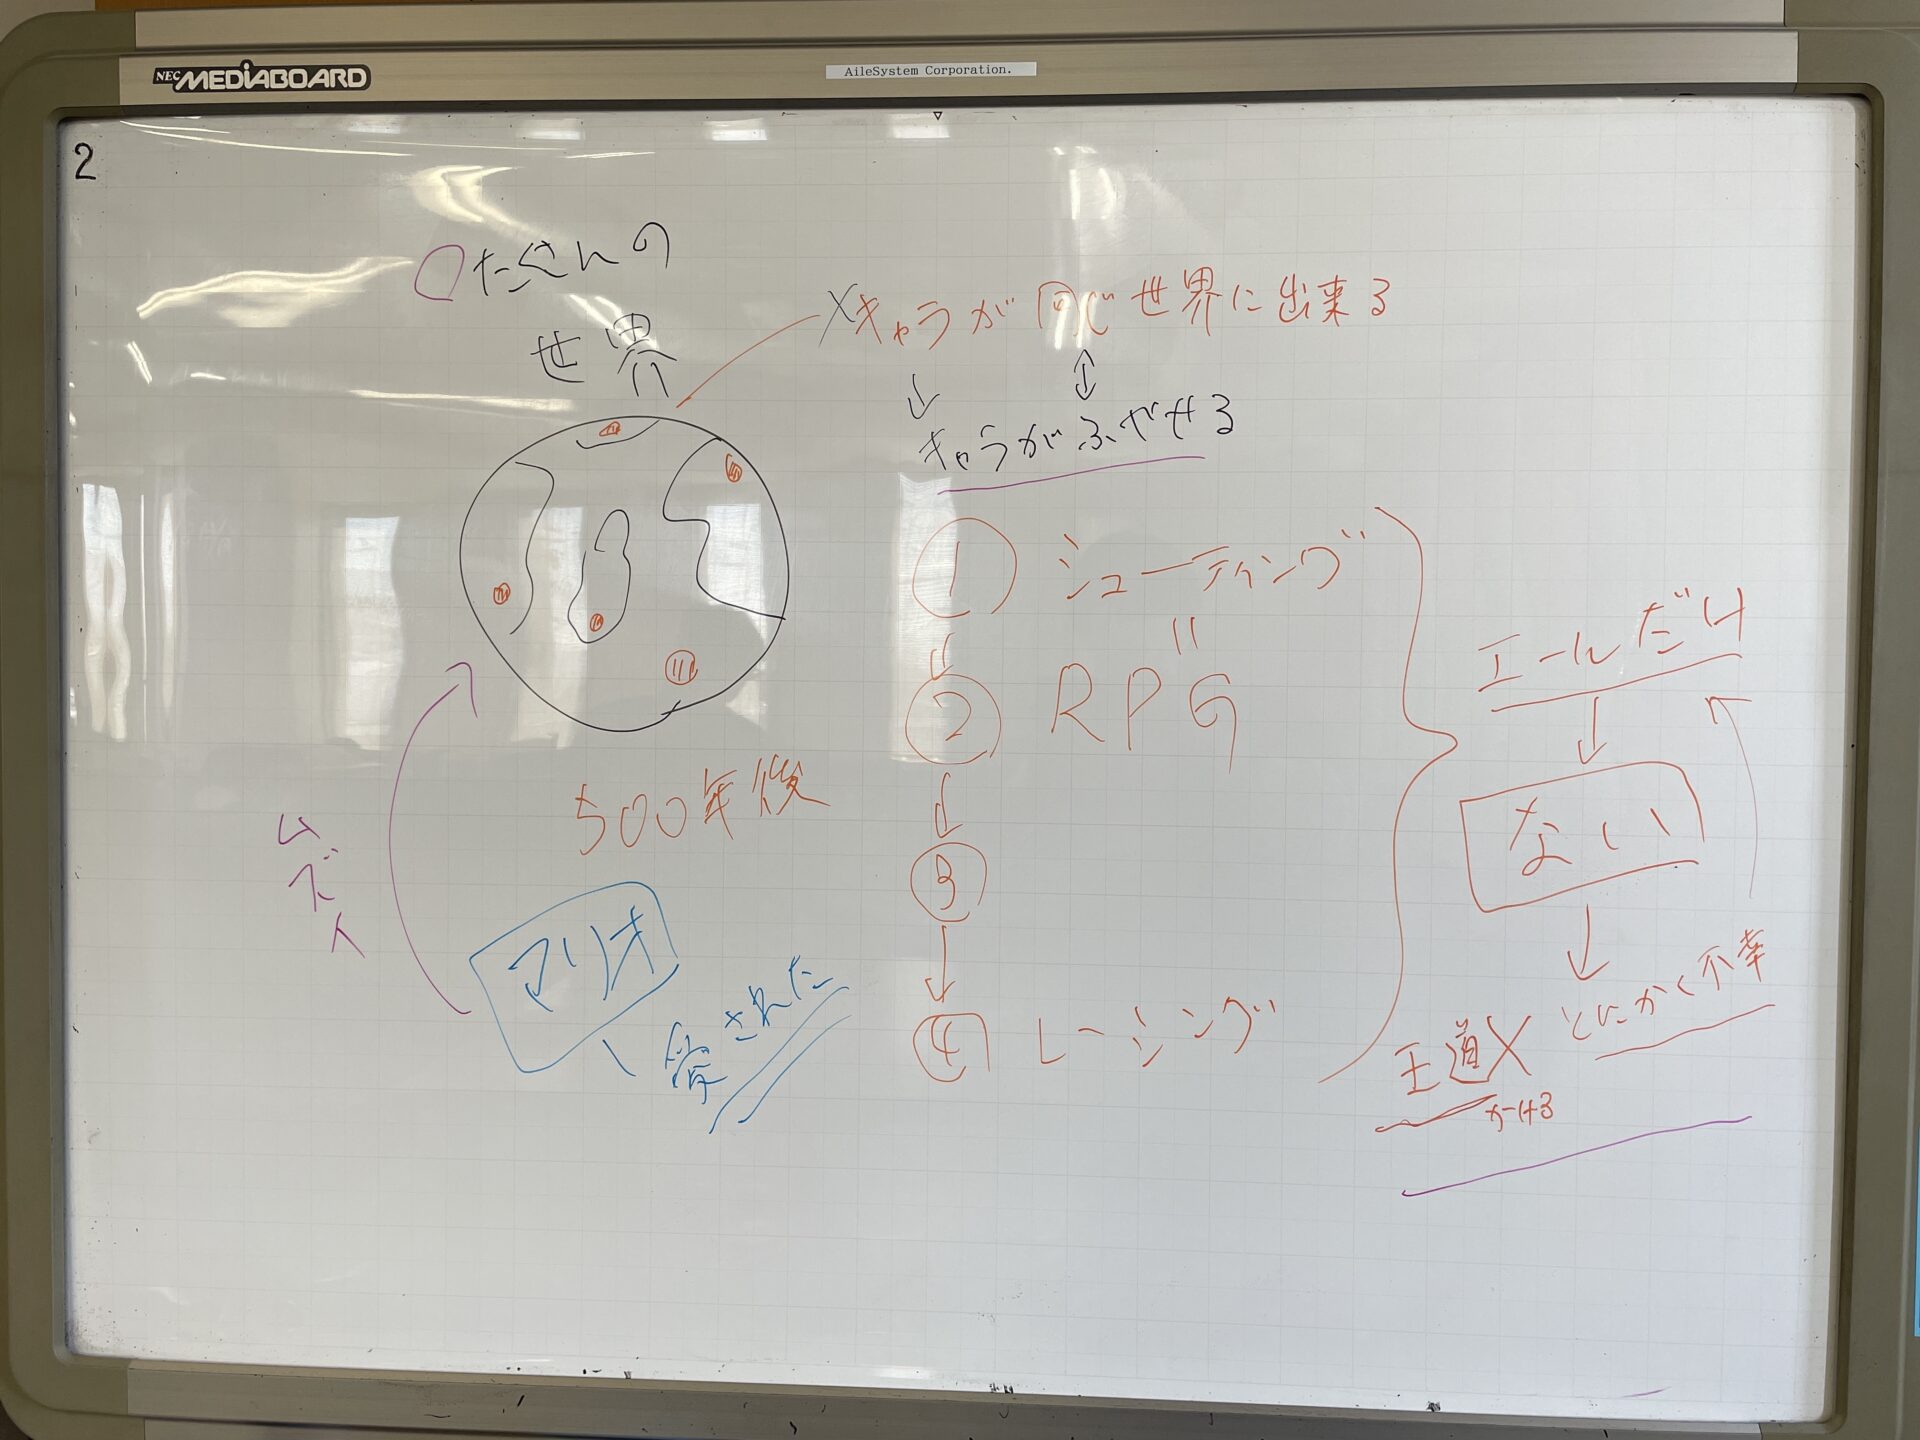 NEC MEDIABOARD
AileSystem Corporation.
2
○たくさんの
世界
×キャラが同じ世界に出来る
↓ ↕
キャラがふやせる
① シューティング
↓ 〃
② RPG
↓
③
↓
④ レーシング
500年後
ムズイ
マリオ
愛された
エールだけ
↓
ない
↓
とにかく不幸
王道×